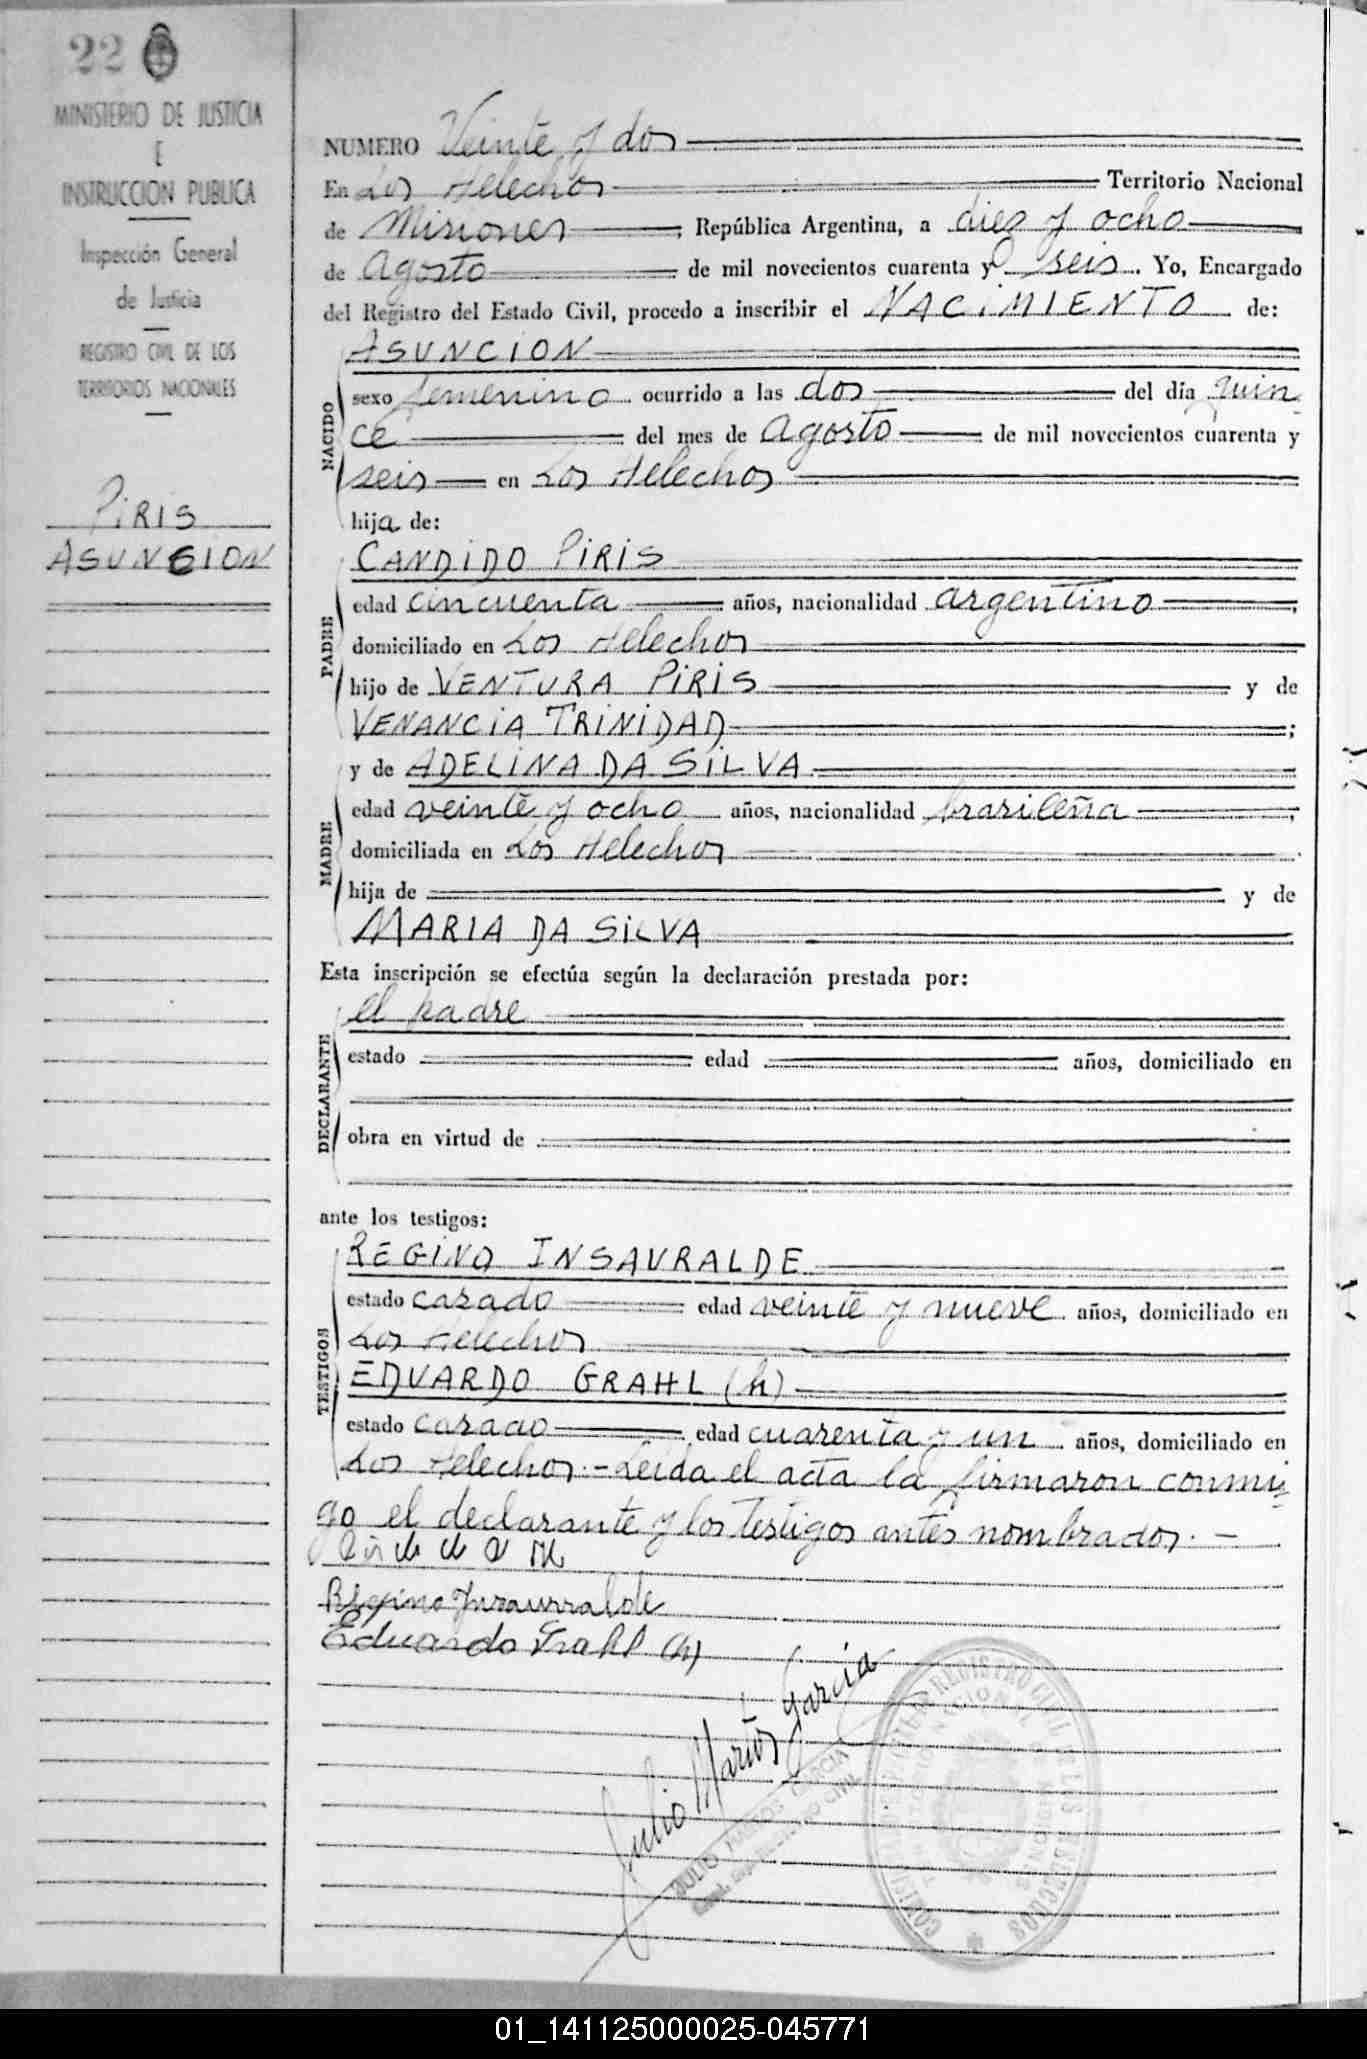 22
MINISTERIO DE JUSTICIA
E
INSTRUCCION PUBLICA
Inspección General
de Justicia
REGISTRO CIVIL DE LOS
TERRITORIOS NACIONALES
PIRIS
ASUNCION
NUMERO Veinte y dos
En Los Helechos Territorio Nacional
de Misiones, República Argentina, a diez y ocho
de Agosto de mil novecientos cuarenta y seis. Yo, Encargado
del Registro del Estado Civil, procedo a inscribir el NACIMIENTO de:
NACIDO
ASUNCION
sexo femenino ocurrido a las dos del día quin-
ce del mes de Agosto de mil novecientos cuarenta y
seis en Los Helechos
hija de:
PADRE
CANDIDO PIRIS
edad cincuenta años, nacionalidad argentino,
domiciliado en Los Helechos
hijo de VENTURA PIRIS y de
VENANCIA TRINIDAD;
MADRE
y de ADELINA DA SILVA
edad veinte y ocho años, nacionalidad brasileña,
domiciliada en Los Helechos
hija de y de
MARIA DA SILVA
Esta inscripción se efectúa según la declaración prestada por:
DECLARANTE
el padre
estado edad años, domiciliado en
obra en virtud de
ante los testigos:
TESTIGOS
REGINO INSAURALDE
estado casado edad veinte y nueve años, domiciliado en
Los Helechos
EDUARDO GRAHL (h)
estado casado edad cuarenta y un años, domiciliado en
Los Helechos.- Leída el acta la firmaron conmi-
go el declarante y los testigos antes nombrados.-
Regino Insaurralde
Eduardo Grahl (h)
Julio Martos Garcia
JULIO MARTOS GARCIA
01_141125000025-045771